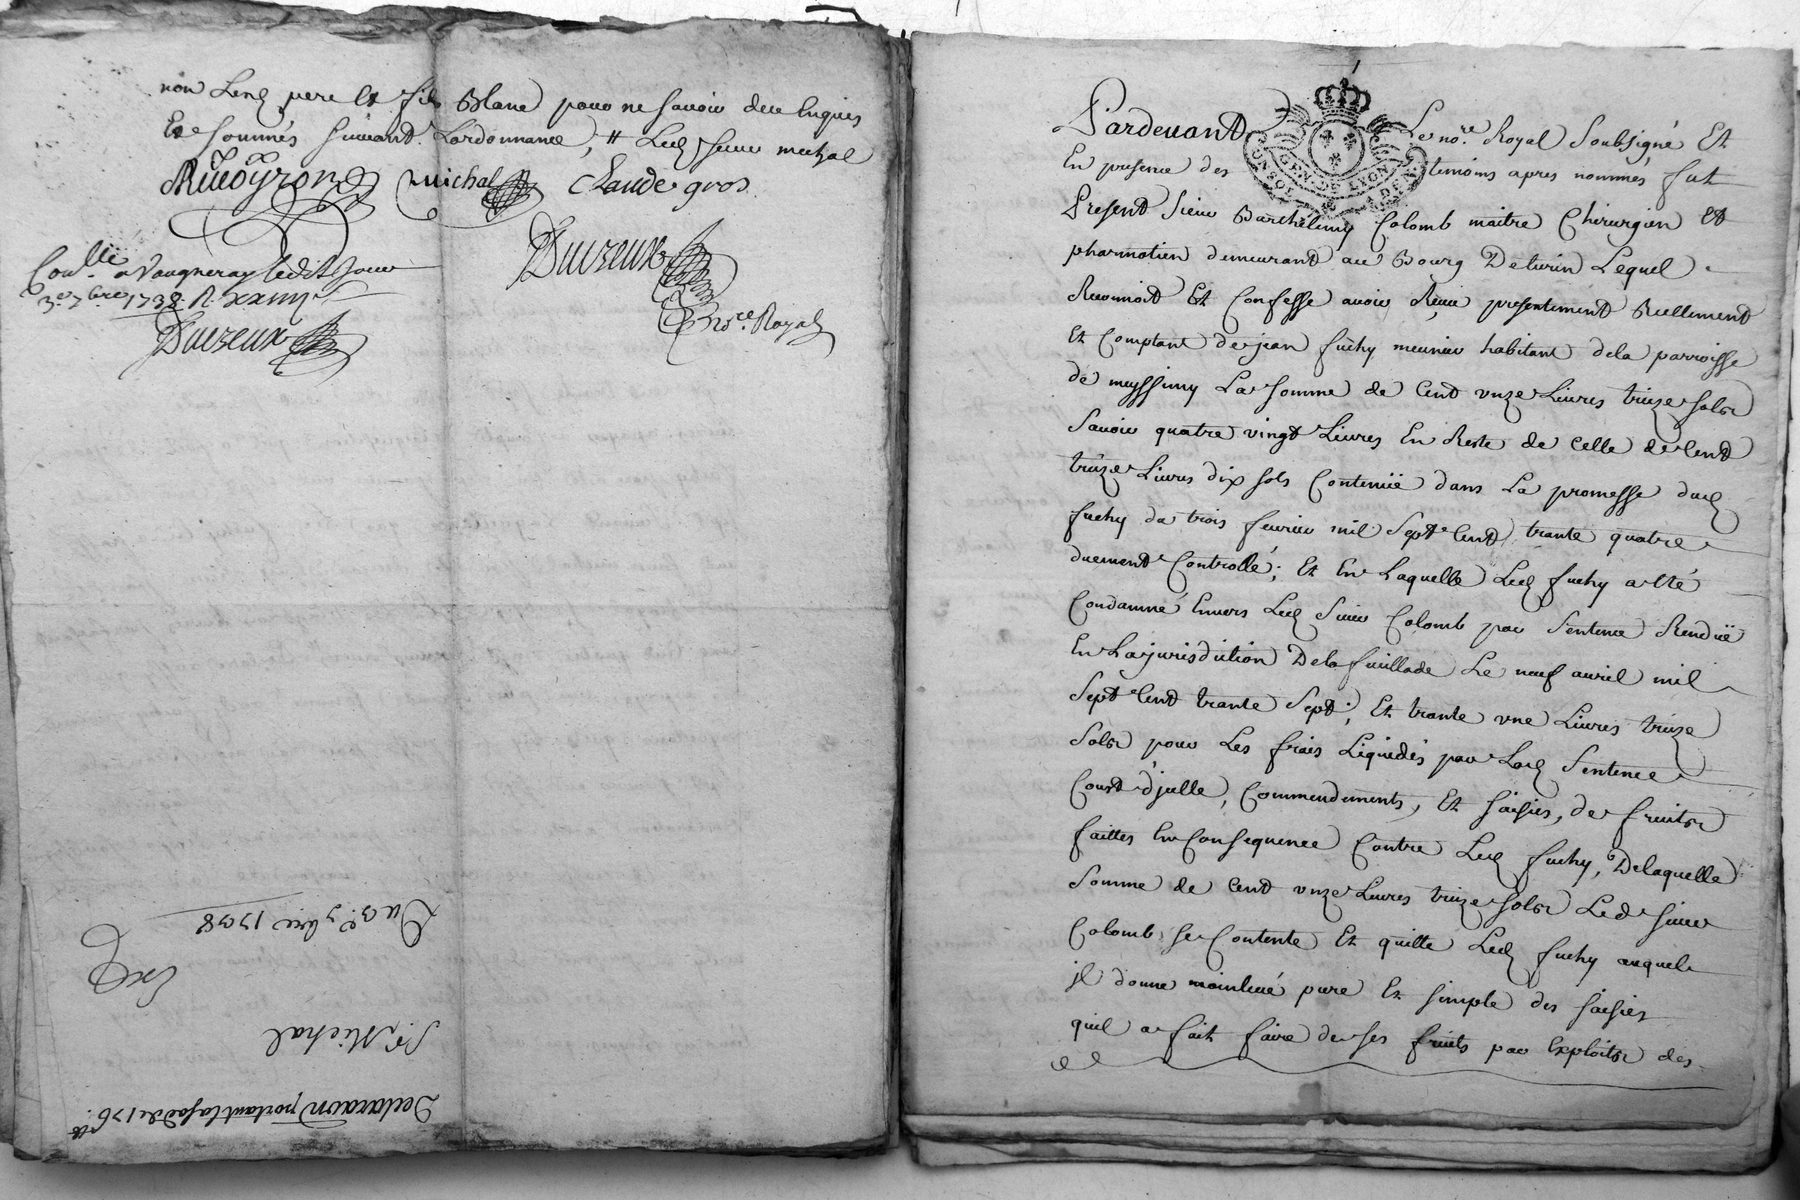 non Led. pere et fils Blanc pour ne scavoir de ce Enquis
Et sommés suivant Lordonnance, # Led. sieur michal
Michal Claude gros
Duvreux
Con.lle a Vaugneray ledit Jour
3e 7bre 1738. R. xxiiij s
Duvreux
no.re Royal
Du 3e 7bre 1738
Exp.
Sr. Michal
Declaraon portant la som de 176 ll.
1
Pardevant Le no.re Royal Soubsigné Et
GEN DE LYON
En presence des temoins apres nommés fut
Present Sieur Barthelemy Colomb maitre Chirurgien et
pharmatien demeurant au Bourg Deturin Lequel
Reconnoit Et Confesse avoir Receu presentement Reellement
Et Comptant de jean fuchy meunier habitant dela parroisse
de meyssimy La somme de Cent unze Livres treize solz
Savoir quatre vingt Livres En Reste de celle de Cent
treize Livres dix sols Contenüe dans La promesse dud.
fuchy du trois fevrier mil Sept Cent trante quatre
duement Controllé; Et En Laquelle Led. fuchy a eté
Condamné Envers Led. Sieur Colomb par Sentence Rendüe
En La jurisdiction Dela fuillade Le neuf avril mil
Sept Cent trante Sept; Et trante une Livres treize
Solz pour Les frais Liquidés par Lad. Sentence
Coust d'jcelle, Commendements, Et saisies, de fruits
faittes En Consequence Contre Led. fuchy, Delaquelle
Somme de Cent unze Livres treize solz Led. sieur
Colomb se Contente Et quitte Led. fuchy auquel
jl donne mainlevé pure Et simple des saisies
quil a fait faire de ses fruits par Exploits des